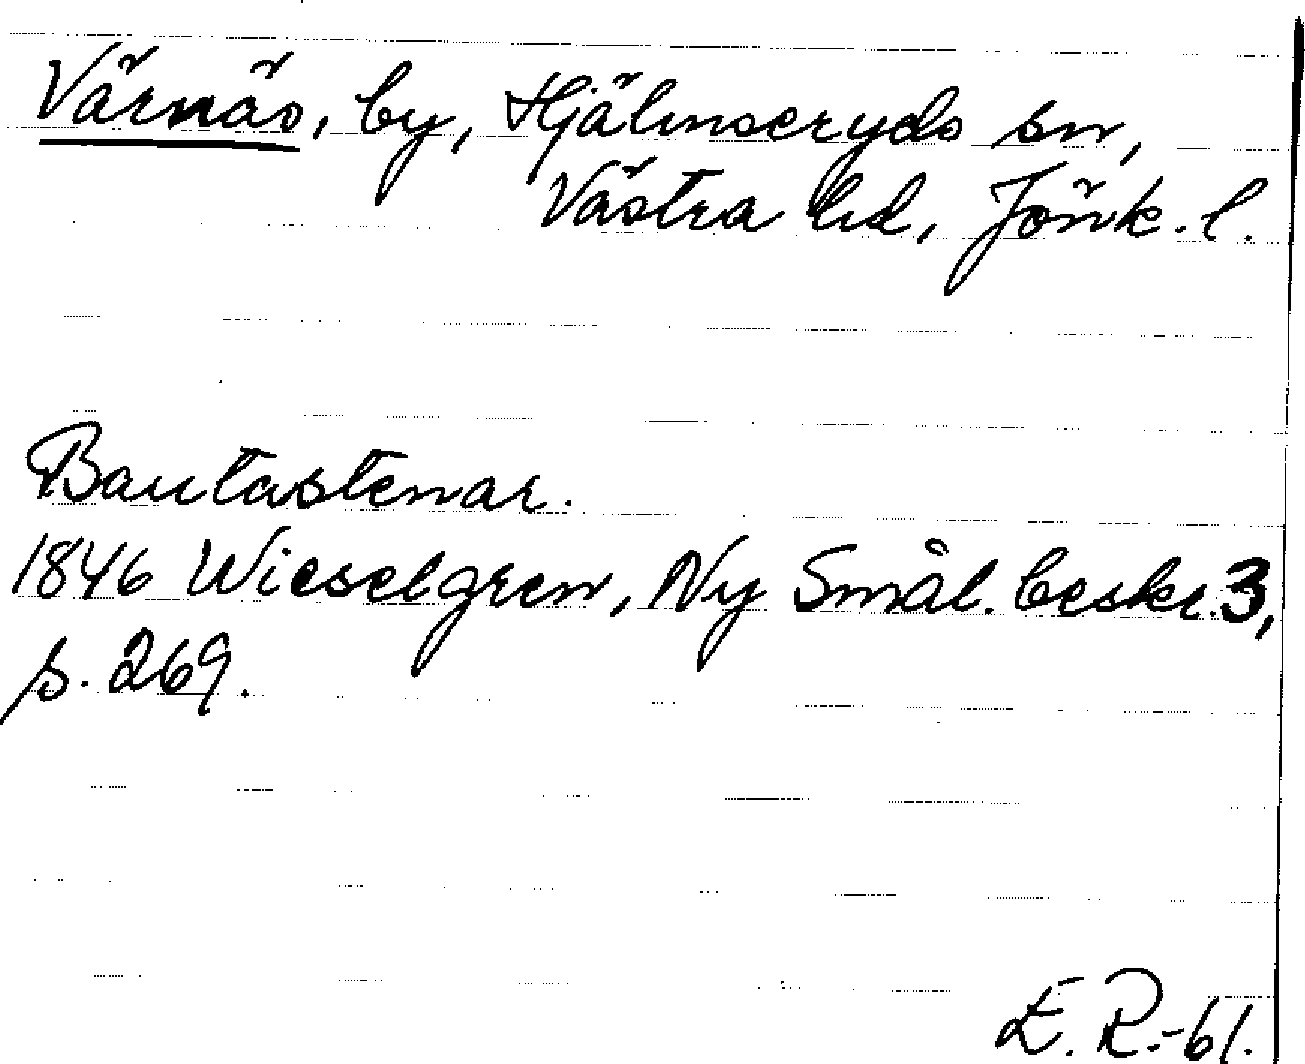 Värnäs, by, Hjälmseryds sn,
Västra hd, Jönk. l.
Bautastenar.
1846 Wieselgren, Ny Smål. beskr. 3,
s. 269.
E. R. -61.